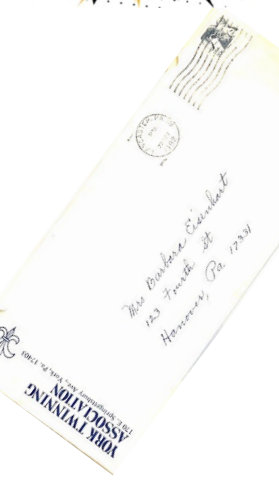 YORK TWINNING
ASSOCIATION
170 E. Springettsbury Ave., York, Pa. 17403
Mrs Barbara Eisenhart
123 Fourth St
Hanover, Pa 17331